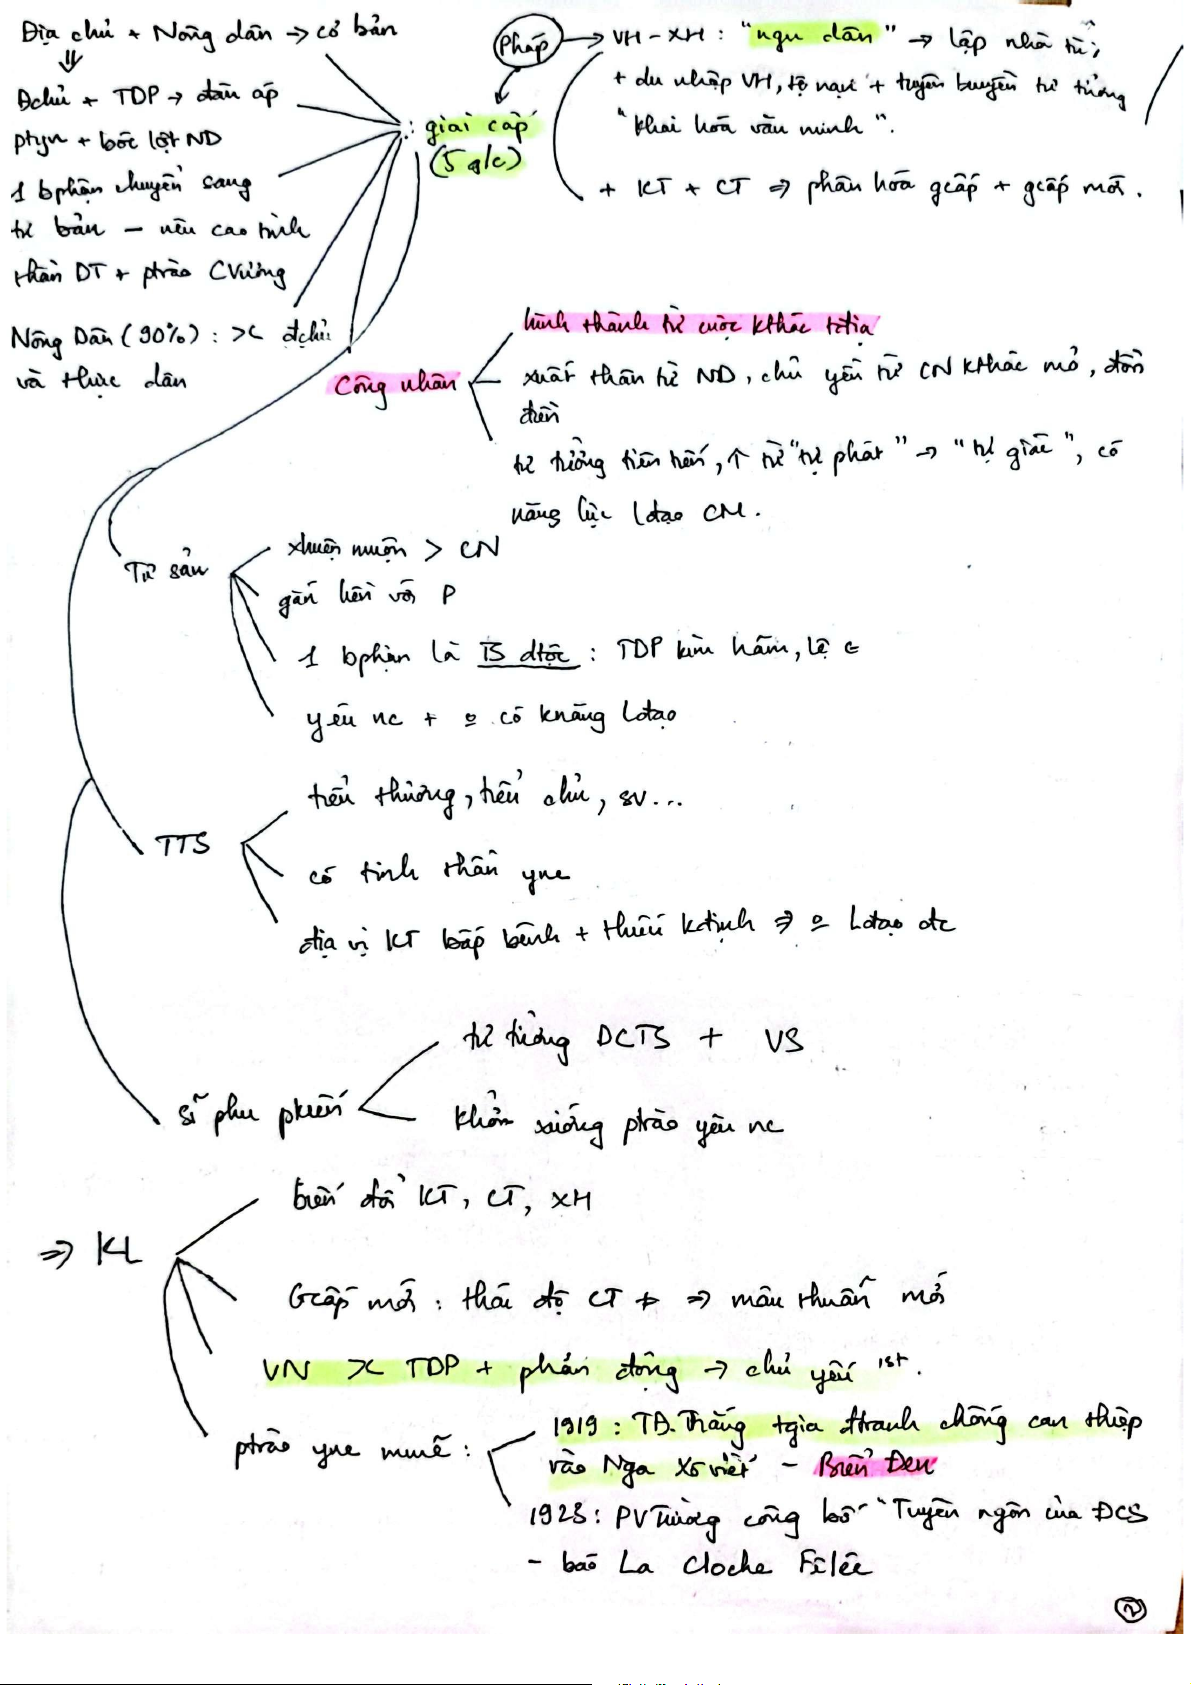 Địa chủ + Nông dân → cơ bản
Đchủ + TDP → đàn áp
ptyn + bóc lột ND
1 bphận chuyển sang
tư bản - nêu cao tinh
thần DT + ptrào CVương
Nông Dân (90%) : >< đchủ
và thực dân
: giai cấp
(5 g/c)
Pháp → VH - XH : "ngu dân" → lập nhà tù,
+ du nhập VH, tệ nạn + tuyên truyền tư tưởng
"khai hóa văn minh".
+ KT + CT ⇒ phân hóa gcấp + gcấp mới.
Công nhân
hình thành từ cuộc kthác tđịa
xuất thân từ ND, chủ yếu từ CN kthác mỏ, đồn
điền
tư tưởng tiên tiến, ↑ từ "tự phát" → "tự giác", có
năng lực lđạo CM.
Tư sản
xhiện muộn > CN
gắn liền với P
1 bphận là TS dtộc : TDP kìm hãm, lệ
yêu nc + o có knăng lđạo
TTS
tiểu thương, tiểu chủ, sv...
có tinh thần ync
địa vị KT bấp bênh + thiếu kđịnh ⇒ o lđạo đc
sĩ phu pkiến
tư tưởng DCTS + VS
khởi xướng ptrào yêu nc
⇒ KL
biến đổi KT, CT, XH
Gcấp mới : thái độ CT ≠ ⇒ mâu thuẫn mới
VN >< TDP + phản động → chủ yếu 1st.
ptrào ync mmẽ :
1919 : TĐ.Thắng tgia đtranh chống can thiệp
vào Nga Xô viết - Biển Đen
1928 : PVTrường công bố "Tuyên ngôn của ĐCS
- báo La Cloche Fêlée
2